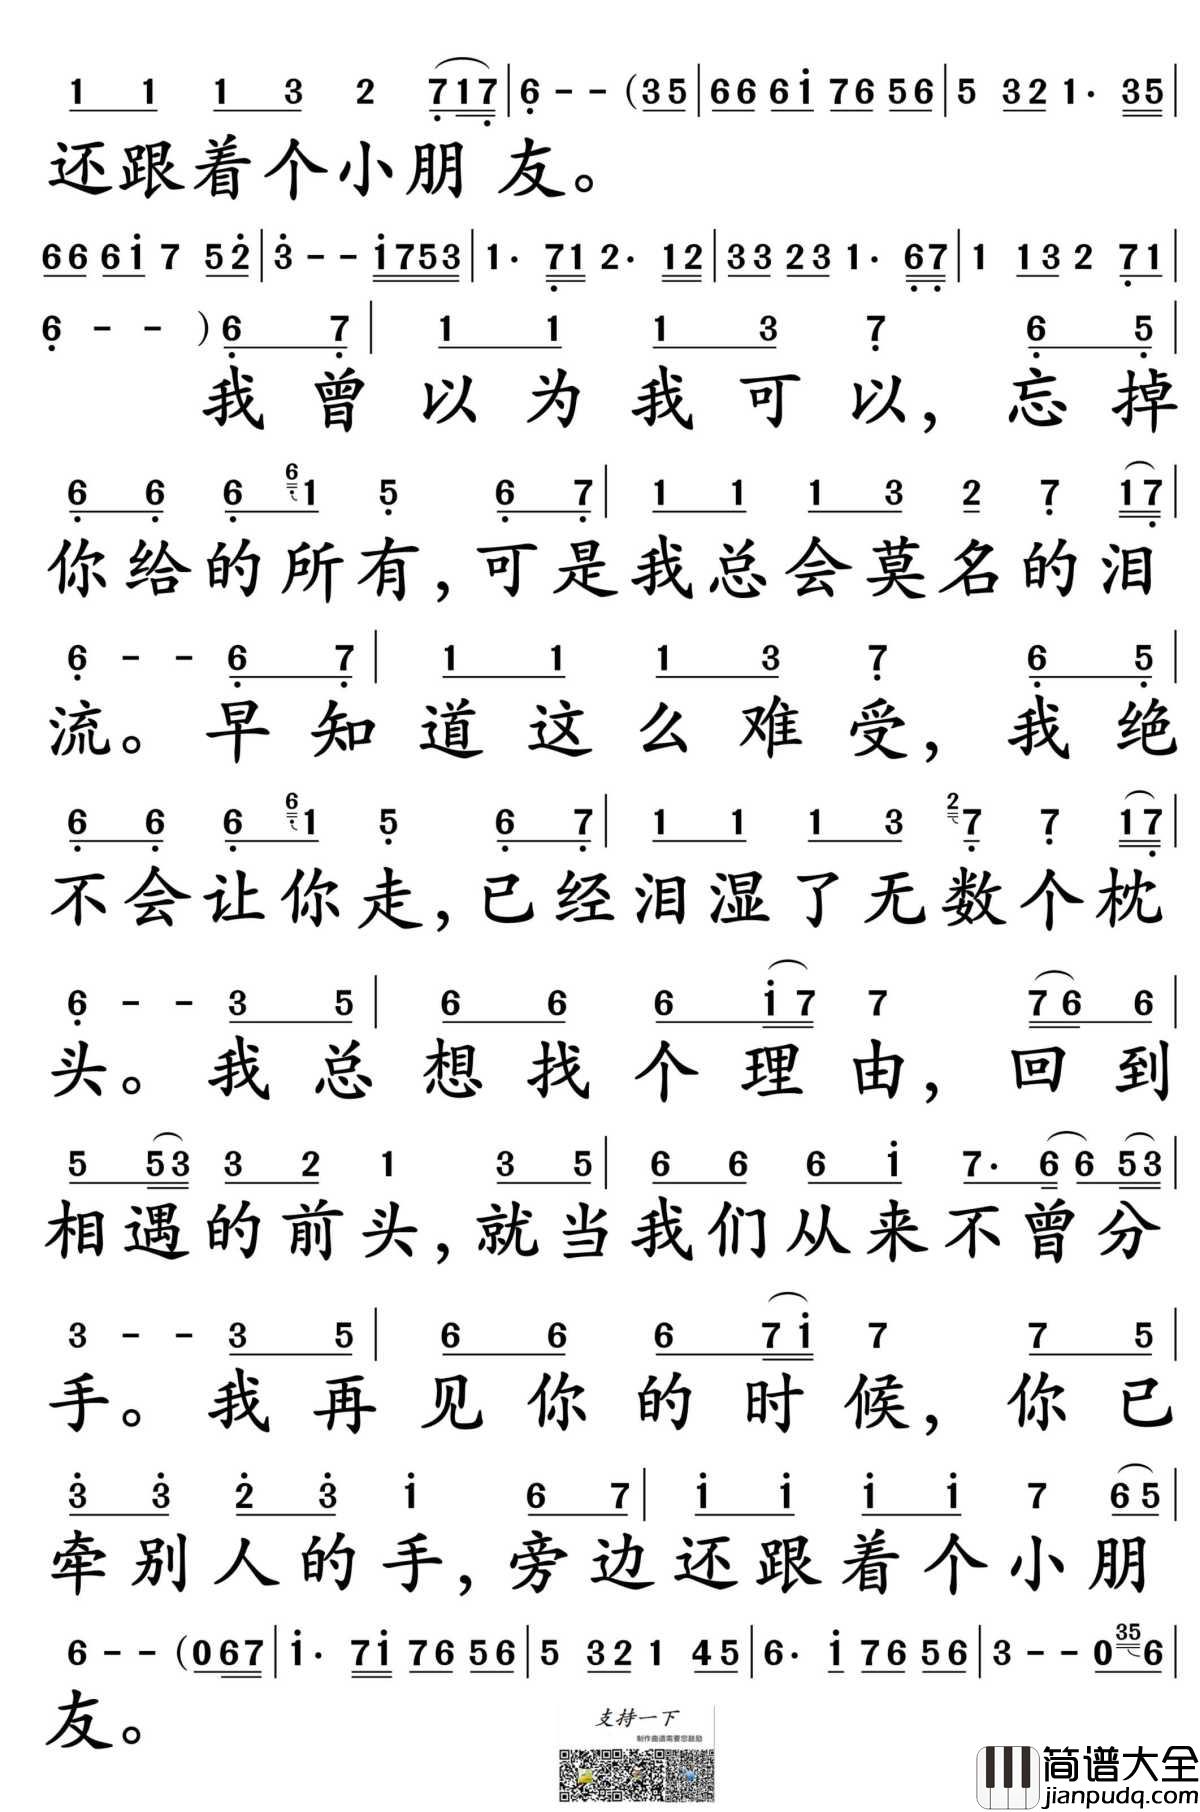 1 1 1 3 2 717 | 6 - - (35 | 66 6i 76 56 | 5 32 1· 35 |
还跟着个小朋 友。
66 6i 7 52 | 3 - - i753 | 1· 71 2· 12 | 33 23 1· 67 | 1 13 2 71 |
6 - - ) 6 7 | 1 1 1 3 7 6 5 |
我曾以为我可以，忘掉
6 6 6 61 5 6 7 | 1 1 1 3 2 7 17 |
你给的所有，可是我总会莫名的泪
6 - - 6 7 | 1 1 1 3 7 6 5 |
流。早知道这么难受，我绝
6 6 6 61 5 6 7 | 1 1 1 3 27 7 17 |
不会让你走，已经泪湿了无数个枕
6 - - 3 5 | 6 6 6 i7 7 76 6 |
头。我总想找个理由，回到
5 53 3 2 1 3 5 | 6 6 6 i 7· 6 6 53 |
相遇的前头，就当我们从来不曾分
3 - - 3 5 | 6 6 6 7i 7 7 5 |
手。我再见你的时候，你已
3 3 2 3 i 6 7 | i i i i 7 65 |
牵别人的手，旁边还跟着个小朋
6 - - (067 | i· 7i 76 56 | 5 32 1 45 | 6· i 76 56 | 3 - - 0 356 |
友。
支持一下
制作曲谱需要您鼓励
简谱大全
jianpudq.com